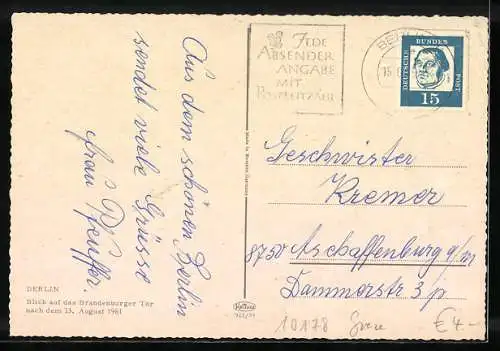 Aus dem schönen Berlin
sendet viele Grüsse
Frau Pfeuffer.
BERLIN
Blick auf das Brandenburger Tor
nach dem 13. August 1961
JEDE
ABSENDER
ANGABE
MIT
POSTLEITZAHL
DEUTSCHE
BUNDES
POST
15
Geschwister
Kremer
8750 Aschaffenburg a/m
Dammerstr. 3/p
10178
€ 4.-